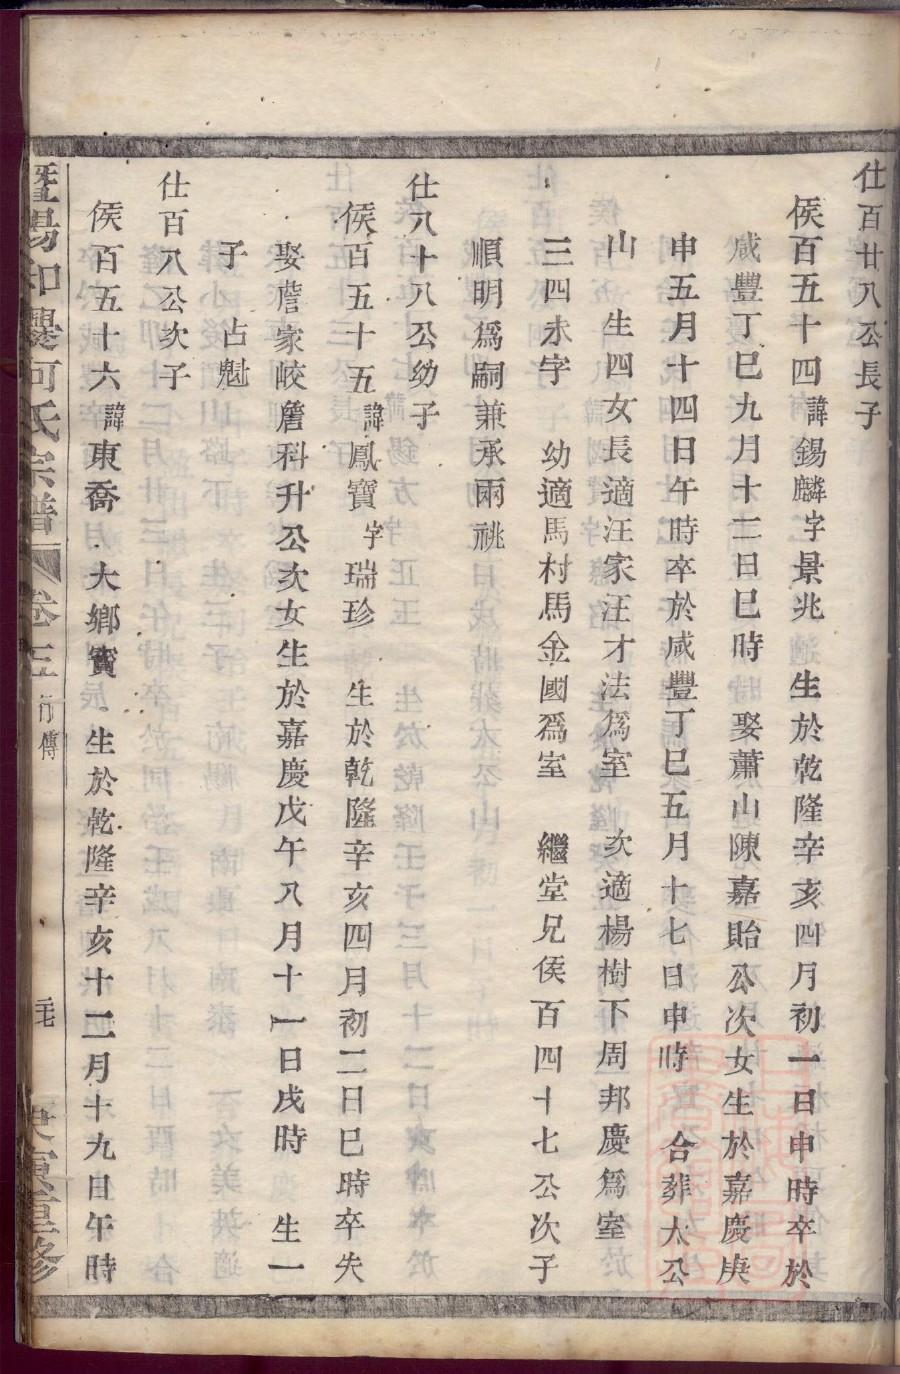 仕百廿八公長子
侯百五十四諱錫麟字景兆生於乾隆辛亥四月初一日申時卒於
咸豐丁巳九月十二日巳時娶蕭山陳嘉貽公次女生於嘉慶庚
申五月十四日午時卒於咸豐丁巳五月十七日申時合葬大公
山生四女長適汪家汪才法爲室次適楊樹下周邦慶爲室
三四未字幼適馬村馬金國爲室繼堂兄侯百四十七公次子
順明爲嗣兼承兩祧
仕八十八公幼子
侯百五十五諱鳳寶字瑞珍生於乾隆辛亥四月初二日巳時卒失
娶詹家峧詹科升公次女生於嘉慶戊午八月十一日戌時生一
子占魁
仕百八公次子
侯百五十六諱東喬大鄉賓生於乾隆辛亥十二月十九日午時
暨陽和 何氏宗譜 卷三 行傳 重修